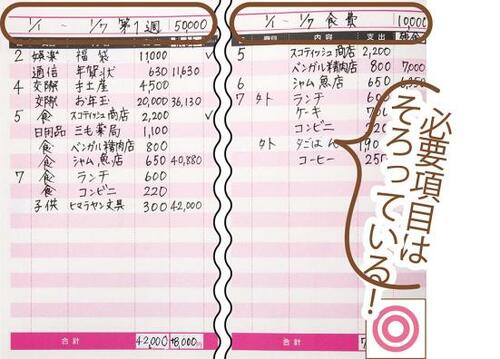 1/1 ~ 1/7 第1週 50000
2 娯楽 福袋 11,000
通信 年賀状 630 11,630
4 交際 手土産 4500
交際 お年玉 20,000 36,130
5 食 スコティッシュ商店 2,200
日用品 三毛薬局 1,100
食 ベンガル精肉店 800
食 シャム魚店 650 40,880
7 食 ランチ 600
食 コンビニ 220
子供 ヒマラヤン文具 300 42,000
合計 42,000 +8,000
1/1 ~ 1/7 食費 10000
月日 項目 内容 支出 残金
5 スコティッシュ商店 2,200
ベンガル精肉店 800 7,000
6 シャム魚店 650 6,350
7 外 ランチ 600
ケーキ
コンビニ 220
外
コーヒー 250
合計
必要項目は
そろっている!